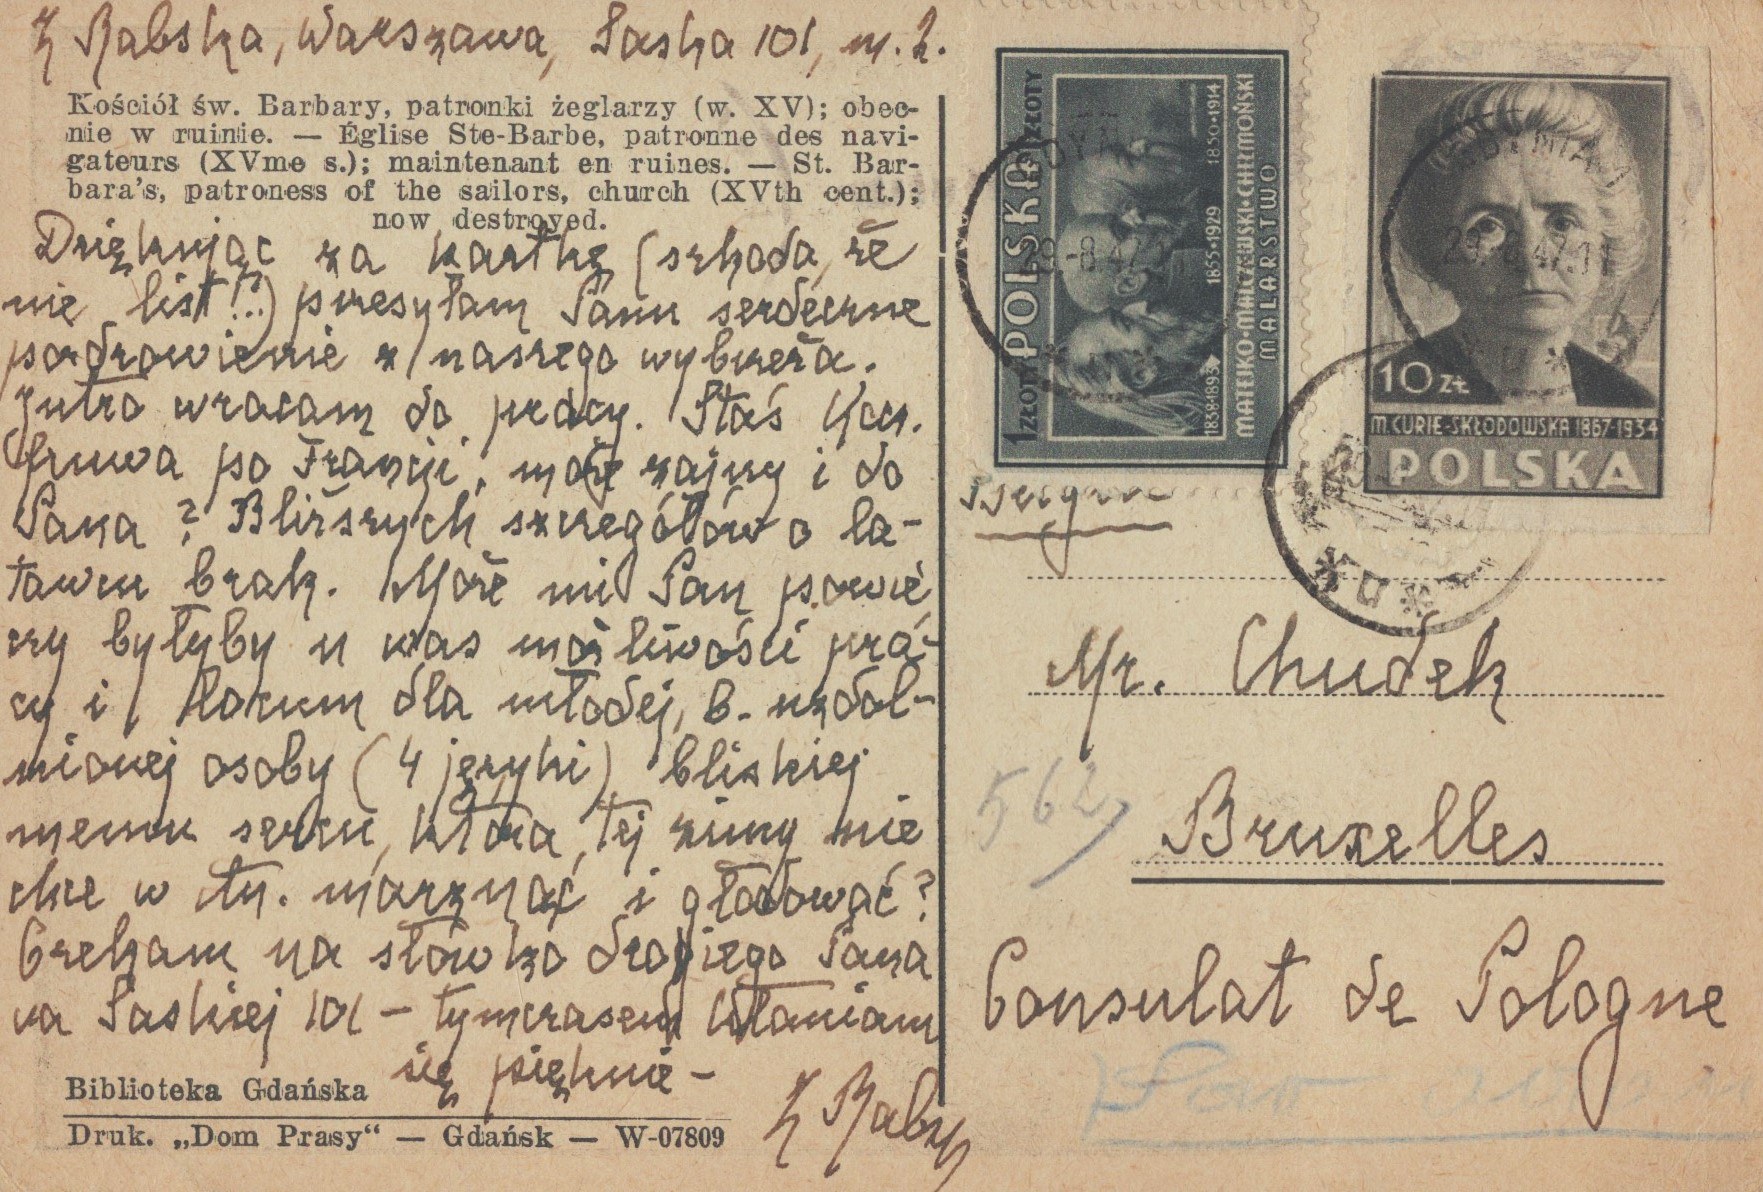 Z Rabska, Warszawa, Saska 101, m. 2.
Kościół św. Barbary, patronki żeglarzy (w. XV); obec-
nie w ruinie. — Église Ste-Barbe, patronne des navi-
gateurs (XVme s.); maintenant en ruines. — St. Bar-
bara's, patroness of the sailors, church (XVth cent.);
now destroyed.
Dziękując za kartkę (szkoda, że
nie list!?..) przesyłam Panu serdeczne
pozdrowienie z naszego wybrzeża.
Jutro wracam do pracy. Staś
fruwa po Francji, może zajrzy i do
Pana? Bliższych szczegółów o la-
tawcu brak. Może mi Pan powie,
czy byłyby u was możliwości pra-
cy i locum dla młodej, b. uzdol-
nionej osoby (4 języki) bliskiej
memu sercu, która tej zimy nie
chce w marznąć i głodować?
Czekam na słówko drogiego Pana
na Saskiej 101 — tymczasem kłaniam
się pięknie —
Z Rabsk
Biblioteka Gdańska
Druk. „Dom Prasy“ — Gdańsk — W-07809
1 ZŁOTY POLSKA ZŁOTY
1838-1893 1855-1929 1850-1914
MATEJKO·MALCZEWSKI·CHEŁMOŃSKI
MALARSTWO
29.-8.47
10 ZŁ
M. CURIE-SKŁODOWSKA 1867-1934
POLSKA
29.-8.47.11
* u *
Belgia
Mr. Chudek
562
Bruxelles
Consulat de Pologne